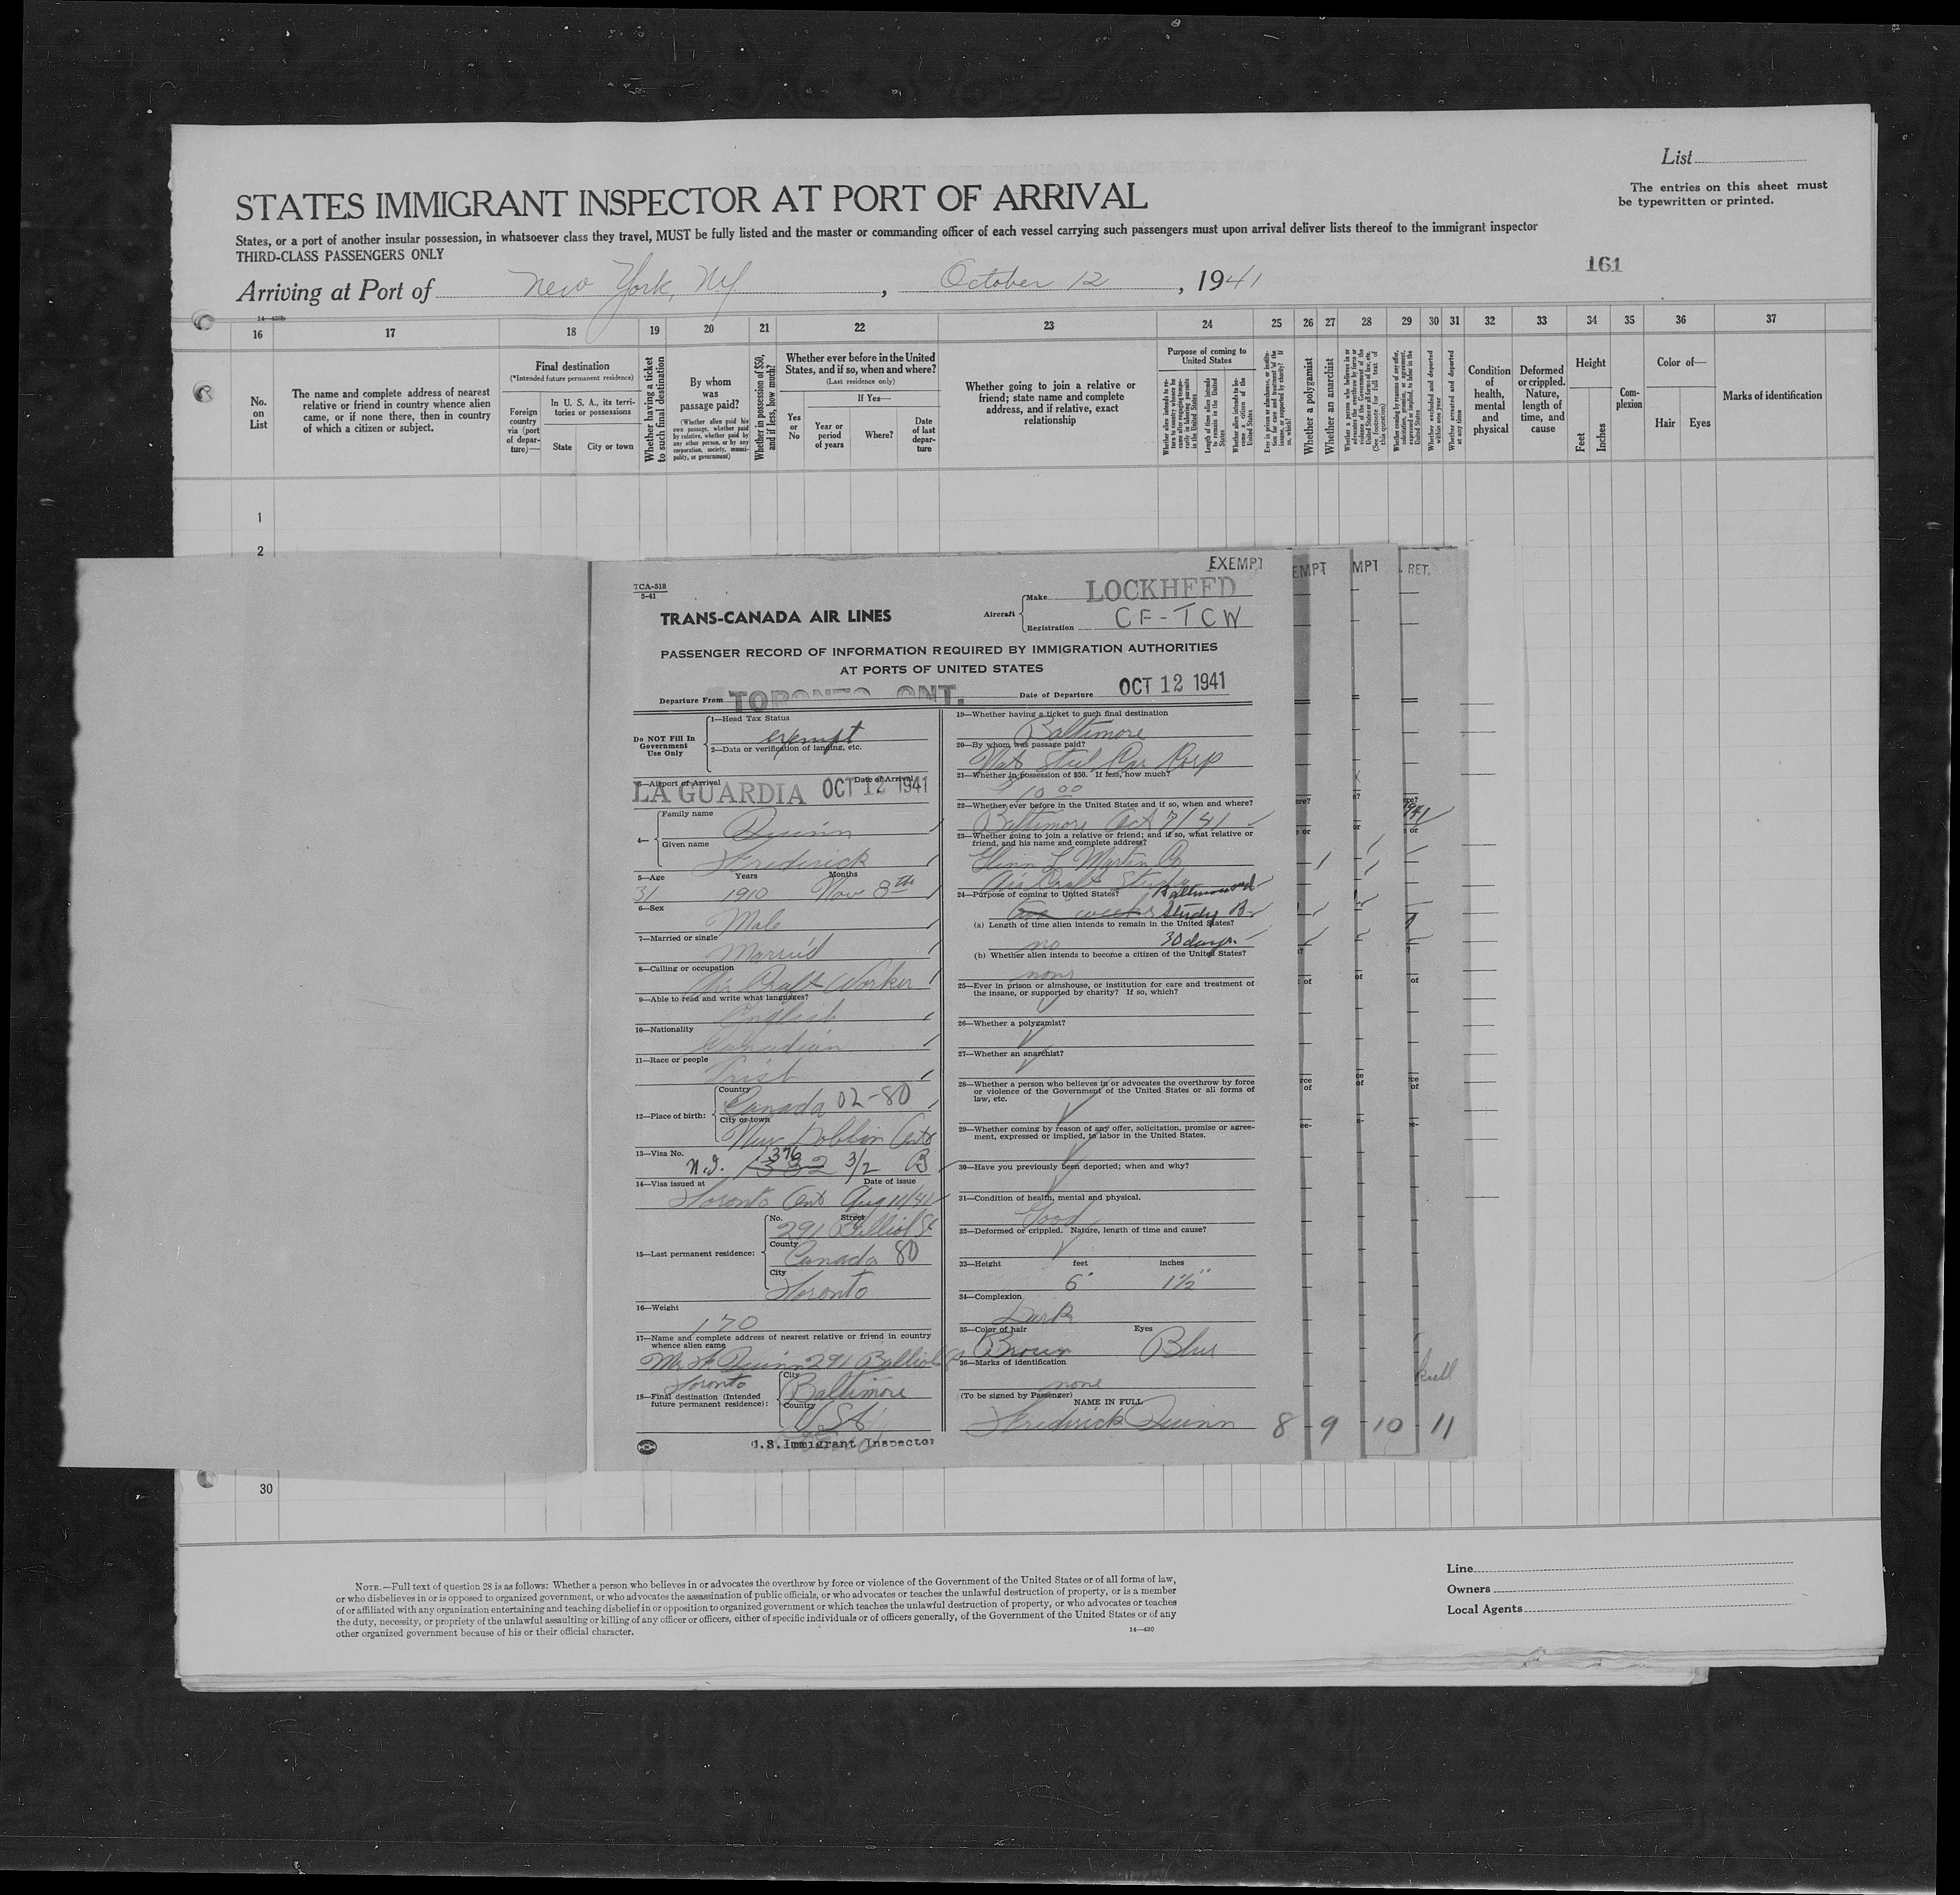 List
The entries on this sheet must
be typewritten or printed.
STATES IMMIGRANT INSPECTOR AT PORT OF ARRIVAL
States, or a port of another insular possession, in whatsoever class they travel, MUST be fully listed and the master or commanding officer of each vessel carrying such passengers must upon arrival deliver lists thereof to the immigrant inspector
THIRD-CLASS PASSENGERS ONLY
161
Arriving at Port of New York, NY, October 12, 1941
14—430b
16 17 18 19 20 21 22 23 24 25 26 27 28 29 30 31 32 33 34 35 36 37
No. on List
The name and complete address of nearest relative or friend in country whence alien came, or if none there, then in country of which a citizen or subject.
Final destination
(*Intended future permanent residence)
Foreign country via (port of departure)—
In U. S. A., its territories or possessions
State
City or town
Whether having a ticket to such final destination
By whom was passage paid?
(Whether alien paid his own passage, whether paid by relative, whether paid by any other person, or by any corporation, society, municipality, or government)
Whether in possession of $50, and if less, how much?
Whether ever before in the United States, and if so, when and where?
(Last residence only)
Yes or No
If Yes—
Year or period of years
Where?
Date of last departure
Whether going to join a relative or friend; state name and complete address, and if relative, exact relationship
Purpose of coming to United States
Length of time alien intends to remain in the United States
Whether alien intends to become a citizen of the United States
Whether a polygamist
Whether an anarchist
Whether excluded and deported within one year
Whether arrested and deported at any time
Condition of health, mental and physical
Deformed or crippled. Nature, length of time, and cause
Height
Feet
Inches
Complexion
Color of—
Hair
Eyes
Marks of identification
1
2
TCA-518
5-41
EXEMPT
EMPT
MPT
RET.
TRANS-CANADA AIR LINES
Aircraft
Make LOCKHEED
Registration CF-TCW
PASSENGER RECORD OF INFORMATION REQUIRED BY IMMIGRATION AUTHORITIES
AT PORTS OF UNITED STATES
Departure From TORONTO ONT.
Date of Departure OCT 12 1941
Do NOT Fill In
Government
Use Only
1—Head Tax Status
exempt
2—Data or verification of landing, etc.
3—Airport of Arrival
Date of Arrival
LA GUARDIA OCT 12 1941
4—
Family name
Quinn
Given name
Frederick
5—Age Years Months
31 1910 Nov 8th
6—Sex
Male
7—Married or single
Married
8—Calling or occupation
Air Craft Worker
9—Able to read and write what languages?
English
10—Nationality
Canadian
11—Race or people
Irish
12—Place of birth:
Country
Canada 02-80
City or town
New Dublin Ont
13—Visa No.
376
1382 3/2 B
14—Visa issued at Date of issue
Toronto Ont Aug 11/41
15—Last permanent residence:
No. Street
291 Balliol St
County
Canada 80
City
Toronto
16—Weight
170
17—Name and complete address of nearest relative or friend in country
whence alien came
Quinn 291 Balliol
Toronto
18—Final destination (Intended
future permanent residence):
City
Baltimore
Country
USA
U.S. Immigrant Inspector
19—Whether having a ticket to such final destination
Baltimore
20—By whom was passage paid?
Nat Steel Car Corp
21—Whether in possession of $50. If less, how much?
$ 10 00
22—Whether ever before in the United States and if so, when and where?
Baltimore Oct 7/41
23—Whether going to join a relative or friend; and if so, what relative or
friend, and his name and complete address?
Glenn L Martin Co
Air Craft Study
24—Purpose of coming to United States?
weeks Study B-
(a) Length of time alien intends to remain in the United States?
no 30 days
(b) Whether alien intends to become a citizen of the United States?
none
25—Ever in prison or almshouse, or institution for care and treatment of
the insane, or supported by charity? If so, which?
26—Whether a polygamist?
27—Whether an anarchist?
28—Whether a person who believes in or advocates the overthrow by force
or violence of the Government of the United States or all forms of
law, etc.
29—Whether coming by reason of any offer, solicitation, promise or agree-
ment, expressed or implied, to labor in the United States.
30—Have you previously been deported; when and why?
31—Condition of health, mental and physical.
Good
32—Deformed or crippled. Nature, length of time and cause?
33—Height feet inches
6' 1½"
34—Complexion
Dark
35—Color of hair Eyes
Brown Blue
36—Marks of identification
none
(To be signed by Passenger)
NAME IN FULL
Frederick Quinn
8 - 9 - 10 - 11
30
NOTE.—Full text of question 28 is as follows: Whether a person who believes in or advocates the overthrow by force or violence of the Government of the United States or of all forms of law,
or who disbelieves in or is opposed to organized government, or who advocates the assassination of public officials, or who advocates or teaches the unlawful destruction of property, or is a member
of or affiliated with any organization entertaining and teaching disbelief in or opposition to organized government or which teaches the unlawful destruction of property, or who advocates or teaches
the duty, necessity, or propriety of the unlawful assaulting or killing of any officer or officers, either of specific individuals or of officers generally, of the Government of the United States or of any
other organized government because of his or their official character.
14—430
Line
Owners
Local Agents